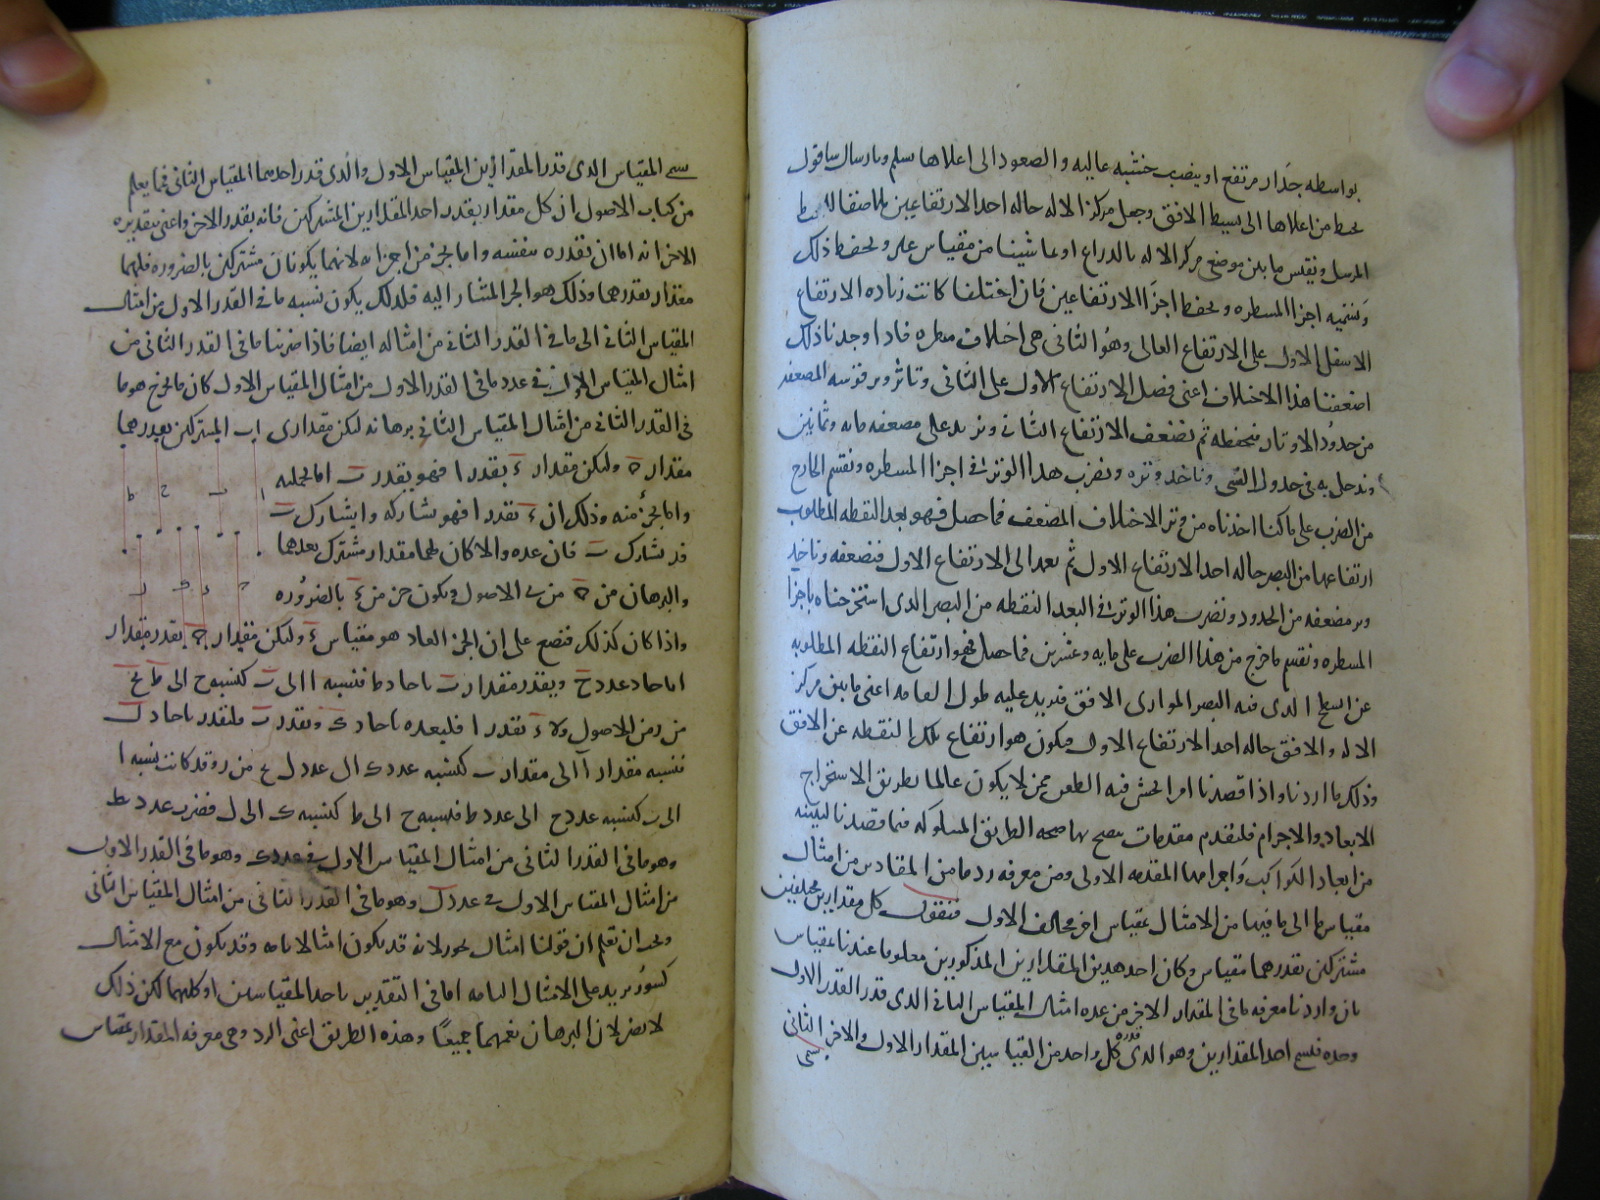 بواسطه جدار مرتفع او بنصب خشبه عاليه والصعود الى اعلاها بسلم وبارسال ساقول
بخيط من اعلاها الى بسيط الافق وجعل مركز الاله حاله احد الارتفاعين ملاصقا للخيط
المرسل ونقيس ما بين موضعى مركز الاله بالذراع او بما شينا من مقياس غيره ونحفظ ذلك
ونسميه اجزا المسطره ونحفظ اجزا الارتفاعين فان اختلفا كانت زياده الارتفاع
الاسفل الاول على الارتفاع العالى وهو الثانى هى اختلاف منظره فاذا وجدنا ذلك
اضعفنا هذا الاختلاف اعنى فضل الارتفاع الاول على الثانى وناخذ وتر قوسه المضعفه
من جدول الاوتار فنحفظه ثم نضعف الارتفاع الثانى ونزيد على مضعفه مايه وثمانين
وندخل به فى جدول القسى وناخذ وتره ونضرب هذا الوتر فى اجزا المسطره ونقسم الخارج
من الضرب على ما كنا اخذناه من وتر الاختلاف المضعف فما حصل فهو بعد النقطه المطلوب
ارتفاعها من البصر حاله احد الارتفاع الاول ثم نعمد الى الارتفاع الاول فنضعفه وناخذ
وتر مضعفه من الجدود ونضرب هذا الوتر فى البعد النقطه من البصر الذى استخرجناه باجزا
المسطره ونقسم ما خرج من هذا الضرب على مايه وعشرين فما حصل فهو ارتفاع النقطه المطلوبه
عن السطح الذى فيه البصر الموازى الافق فنزيد عليه طول القامه اعنى ما بين مركز
الاله والافق حاله احد الارتفاع الاول فيكون هو ارتفاع تلك النقطه عن الافق
وذلك ما اردنا واذا قصدنا امرا يخش فيه الطعن ممن لا يكون عالما بطريق الاستخراج
الابعاد والاجرام فلنقدم مقدمات يتضح بها صحه الطريق المسلوكه فيما قصدنا لتبيينه
من ابعاد الكواكب واجرامها المقدمه الاولى ومن معرفه رد ما من المقادير من امثال
مقياس ما الى ما فيها من الامثال بمقياس اخر مخالف الاول فنقول كل مقدارين مختلفين
مشتركين يقدرهما مقياس وكان احد هذين المقدارين المذكورين معلوما عندنا بمقياس
بان واردنا معرفه ما فى المقدار الاخر من عده امثال المقياس الثانى الذى قدر القدر الاول
وحده فلنسم احد المقدارين وهو الذى قدره كل واحد من القياسيين المقدار الاول والاخر الثانى
سمى
سم المقياس الذى قدر المقدارين المقياس الاول والذى قدر احدهما المقياس الثانى فما يعلم
من كتاب الاصول ان كل مقدار يقدر احد المقدارين المشتركين فانه يقدر الاخر واعنى بتقديره
الاخر انه اما ان يقدره بنفسه واما بجز من اجزائه لانهما يكونان مشتركين بالضروره فلهما
مقدار يقدرهما وذلك هو الجز المشار اليه فلذلك يكون نسبه ما فى القدر الاول من امثال
المقياس الثانى الى ما فى القدر الثانى من امثاله ايضا فاذا ضربنا ما فى القدر الثانى من
امثال المقياس الاول فى عدد ما فى القدر الاول من امثال المقياس الاول كان ما يخرج هو ما
فى القدر الثانى من امثال المقياس الثانى برهانه لتكن مقدارى ا ب المشتركين يقدرهما
مقدار ه وليكن مقدار ء يقدر ا فهو يقدر ب اما بجمله
واما بجز منه وذلك ان ء تقدر ا فهو يشاركه وا يشارك ب
فـ يشارك ب فان عده والا كان لهما مقدار مشترك يعدهما
والبرهان من ه من ى الاصول ويكون جز من ء بالضروره
واذا كان كذلك فنضع على ان الجز العاد هو مقياس ء وليكن مقدار ه يقدر مقدار
ا باحاد عدد ح ويقدر مقدار ب باحاد ط فنسبه ا الى ب كنسبه ح الى ط
من الاصول ولا ء تقدر ا فليعده باحاد ى وتقدر ب فلتقدر باحاد ل
فنسبه مقدار ا الى مقدار ب كنسبه عدد ى الى عدد ل وقد كانت نسبه ا
الى ب كنسبه عدد ح الى عدد ط فنسبه ح الى ط كنسبه ى الى ل فضرب عدد ط
وهو ما فى القدر الثانى من امثال المقياس الاول فى عدد ى وهو ما فى القدر الاول
من امثال المقياس الاول فى عدد ل وهو ما فى القدر الثانى من امثال المقياس الثانى
ويجب ان تعلم ان قولنا امثال تجوز لانه قد يكون امثالا تامه وقد يكون مع الامثال
كسور يزيد على الامثال التامه اما فى التقدير باحد المقياسين او كليهما لكن ذلك
لا يضر لان البرهان يعمهما جميعا وهذه الطريق اعنى الرد وهى معرفه المقدار بمقياس